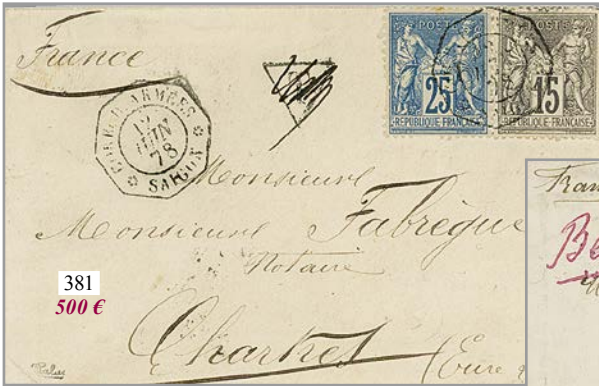 France
POSTES
25
REPUBLIQUE FRANÇAISE
POSTES
15
REPUBLIQUE FRANÇAISE
CORR. D. ARMÉES
JUIN
78
SAIGON
Monsieur
Monsieur Fabrègue
Notaire
Chartres
(Eure
381
500 €
Fran
Be